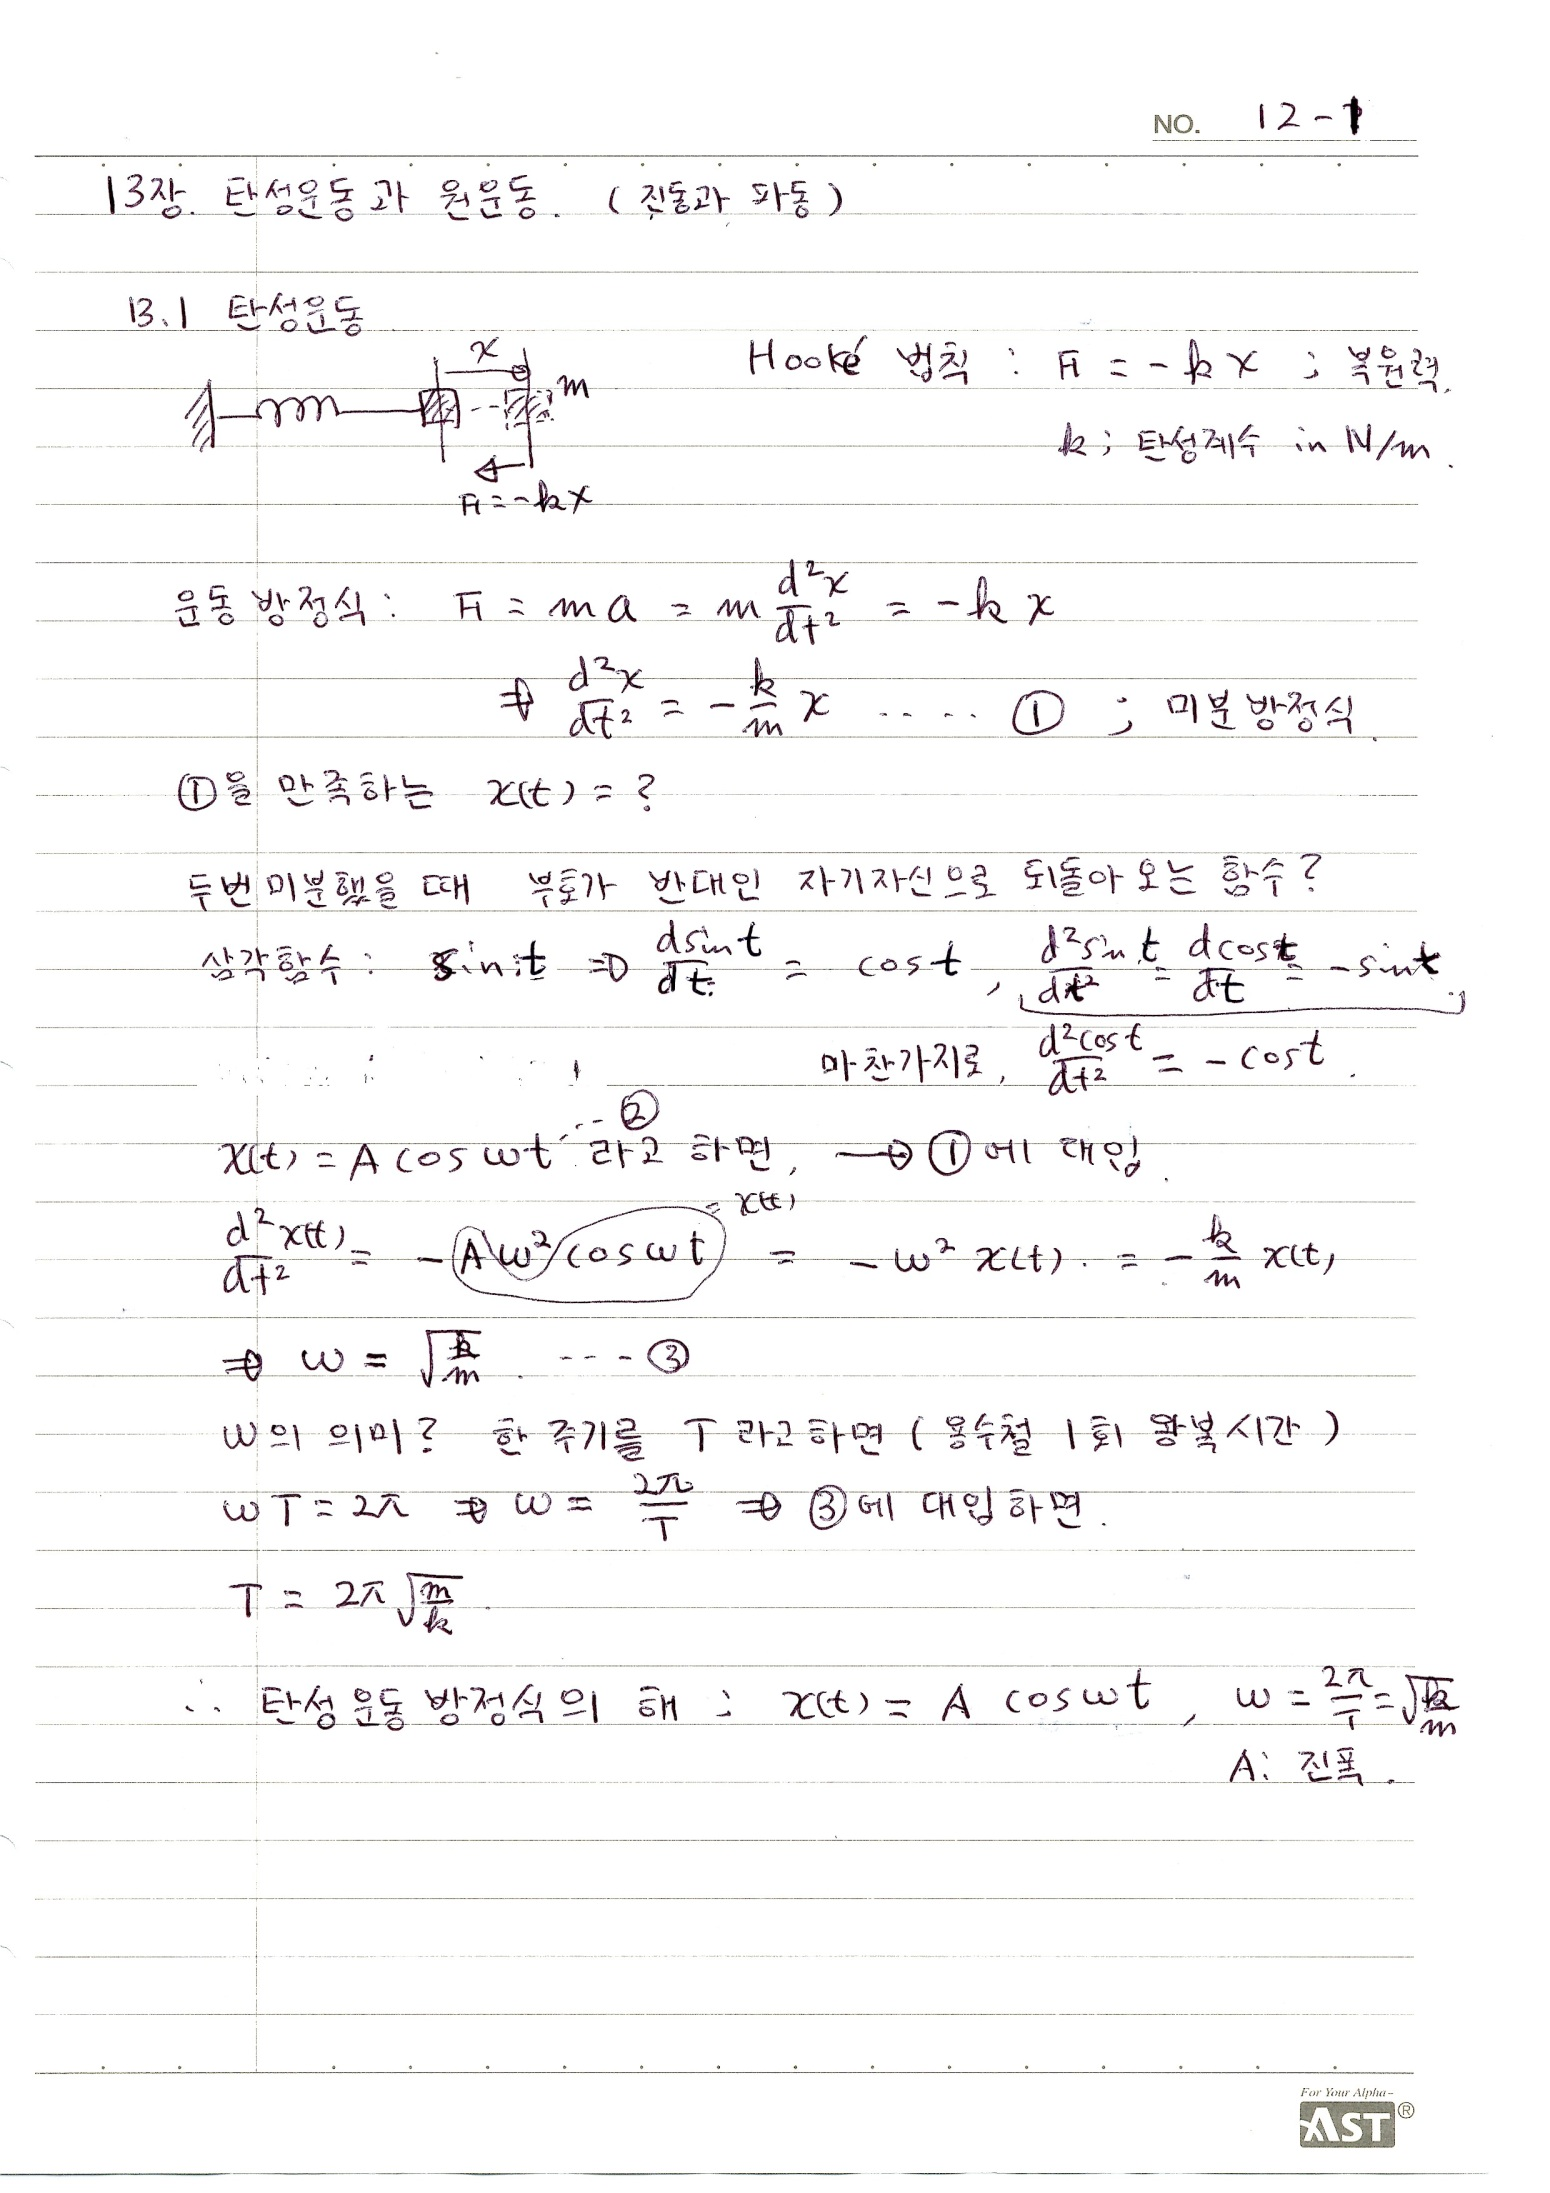 NO. 12-1
13장. 탄성운동과 원운동. (진동과 파동)
13.1 탄성운동
x
m
F = -kx
Hooke 법칙 : F = -kx ; 복원력.
k ; 탄성계수 in N/m.
운동방정식 : F = ma = m d²x/dt² = -kx
⇒ d²x/dt² = -k/m x ..... ① ; 미분방정식.
①을 만족하는 x(t) = ?
두번 미분했을 때 부호가 반대인 자기자신으로 되돌아 오는 함수?
삼각함수 : sin t ⇒ dsint/dt = cos t, d²sint/dt² = dcost/dt = -sint
마찬가지로, d²cost/dt² = -cost.
x(t) = A cos ωt ...② 라고 하면, → ①에 대입.
d²x(t)/dt² = -Aω² cos ωt = -ω² x(t) = -k/m x(t)
= x(t)
⇒ ω = √(k/m) ---- ③
ω의 의미? 한 주기를 T 라고하면 (용수철 1회 왕복시간)
ωT = 2π ⇒ ω = 2π/T ⇒ ③에 대입하면.
T = 2π√(m/k).
∴ 탄성운동방정식의 해 : x(t) = A cos ωt, ω = 2π/T = √(k/m)
A : 진폭.
For Your Alpha-
AST®